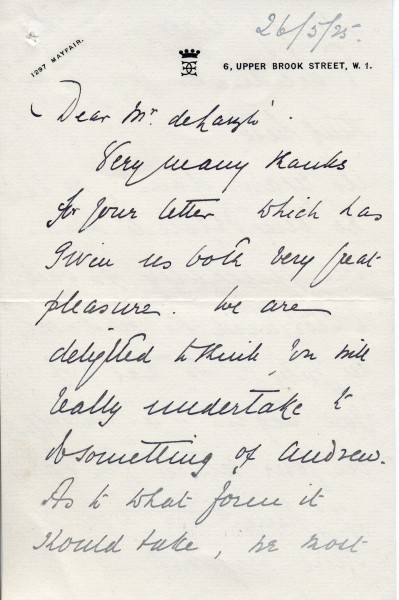 26/5/25.
1297 MAYFAIR.
6, UPPER BROOK STREET, W. 1.
Dear Mr. de Laszlo.
Very many thanks
for your letter which has
given us both very great
pleasure. We are
delighted to think you will
really undertake to
do something of Andrew.
As to what form it
should take, we most